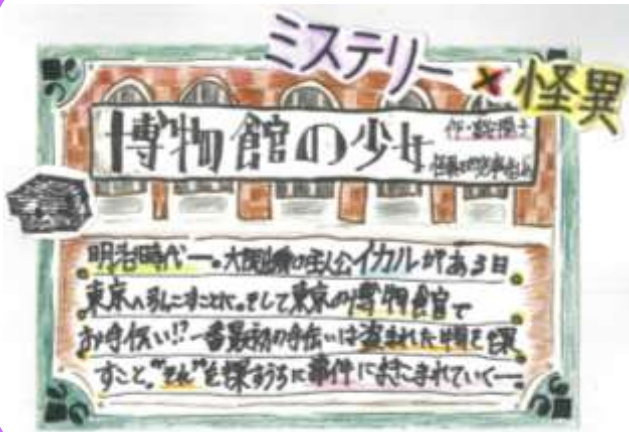 ミステリー×怪異
博物館の少女
作・富安陽子
怪異研究事始め
明治時代―。大阪出身の主人公イカルがある日、
東京へ引っこすことに。そして東京の博物館で
お手伝い!?一番最初の手伝いは盗まれた物を探
すこと。"それ"を探すうちに事件にまきこまれていく―。